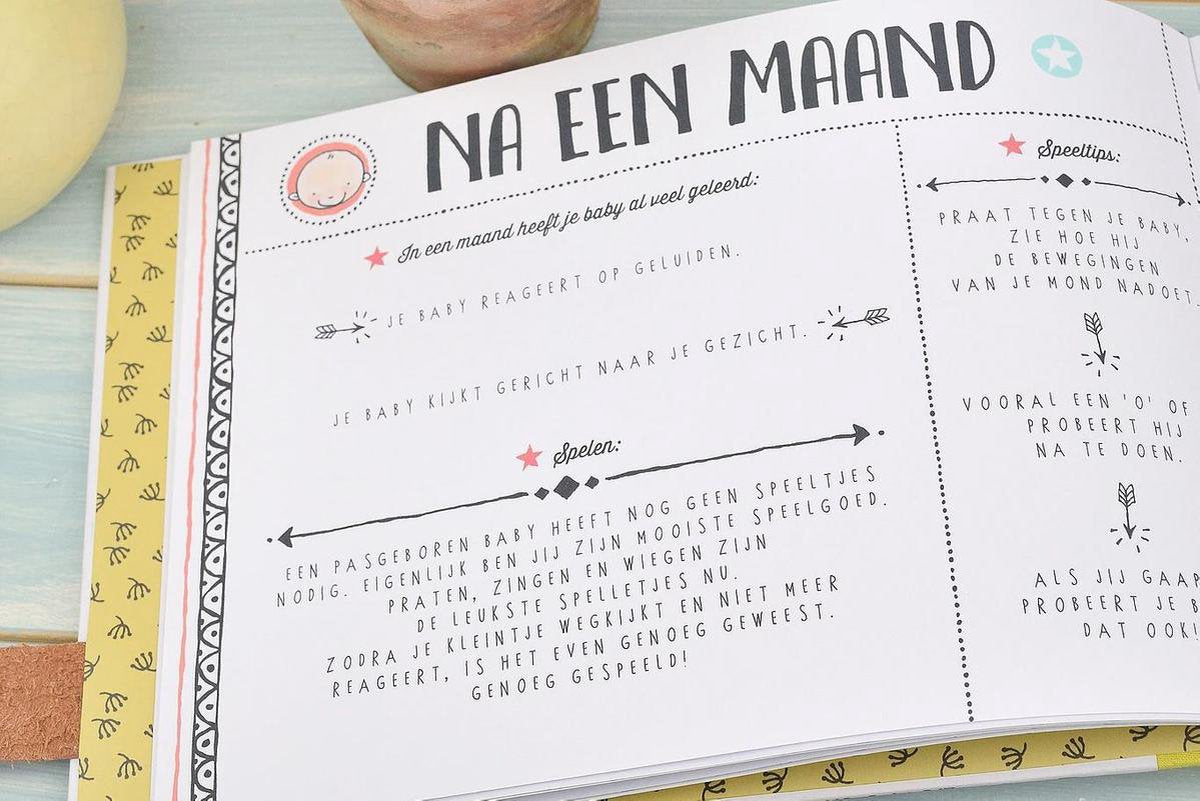 NA EEN MAAND
In een maand heeft je baby al veel geleerd:
JE BABY REAGEERT OP GELUIDEN.
JE BABY KIJKT GERICHT NAAR JE GEZICHT.
Spelen:
EEN PASGEBOREN BABY HEEFT NOG GEEN SPEELTJES
NODIG. EIGENLIJK BEN JIJ ZIJN MOOISTE SPEELGOED.
PRATEN, ZINGEN EN WIEGEN ZIJN
DE LEUKSTE SPELLETJES NU.
ZODRA JE KLEINTJE WEGKIJKT EN NIET MEER
REAGEERT, IS HET EVEN GENOEG GEWEEST.
GENOEG GESPEELD!
Speeltips:
PRAAT TEGEN JE BABY,
ZIE HOE HIJ
DE BEWEGINGEN
VAN JE MOND NADOET
VOORAL EEN 'O' OF
PROBEERT HIJ
NA TE DOEN.
ALS JIJ GAAP
PROBEERT JE B
DAT OOK!